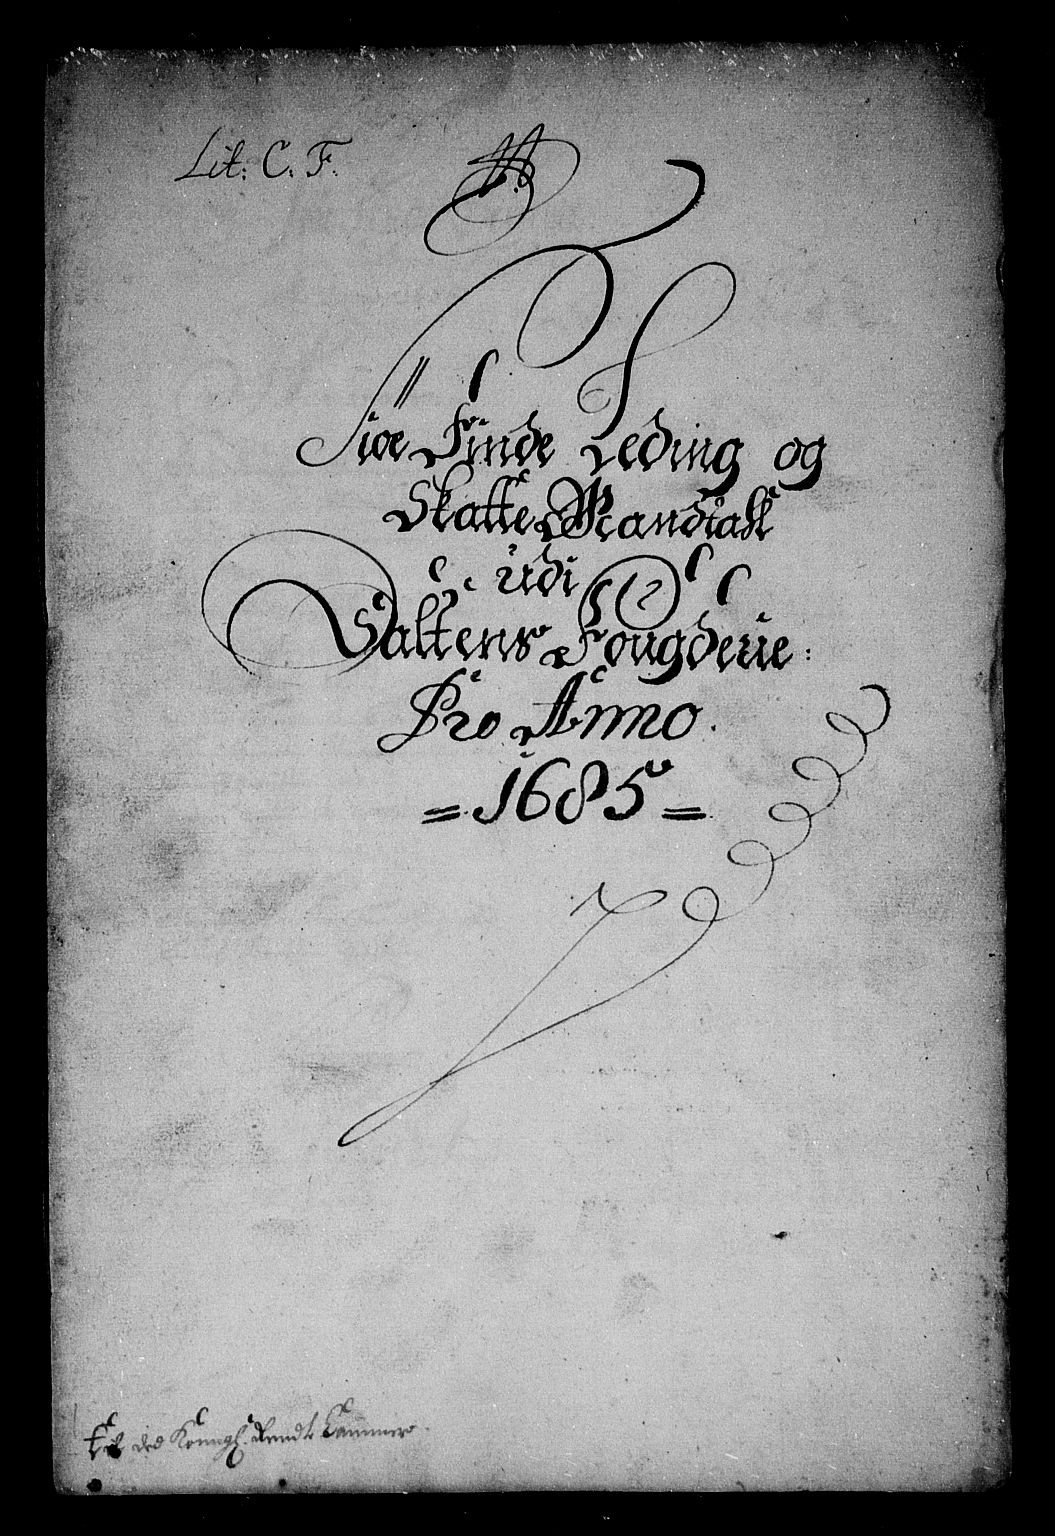 Lit: C. F.
Siøe Finde Leding og
Skatte Mandtall
udi
Saltens Fougderie:
Pro Anno.
= 1685 =
Til ded Konngl. Rendte Cammer.